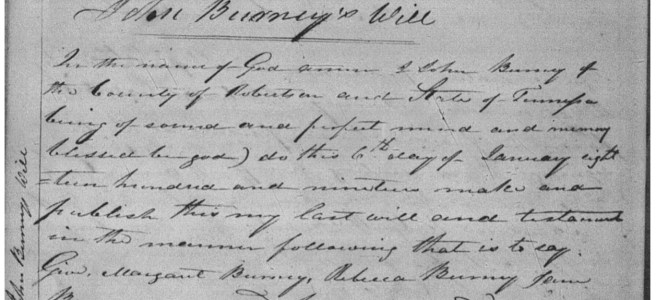 John Burney's Will
In the name of God amen I John Burney of
the County of Robertson and State of Tennessee
being of sound and perfect mind and memory
blessed be god) do this 6th day of January eight
=teen hundred and nineteen make and
publish this my last will and testament
in the manner following that is to say.
Give. Margaret Burney, Rebecca Burney
John Burneys Will